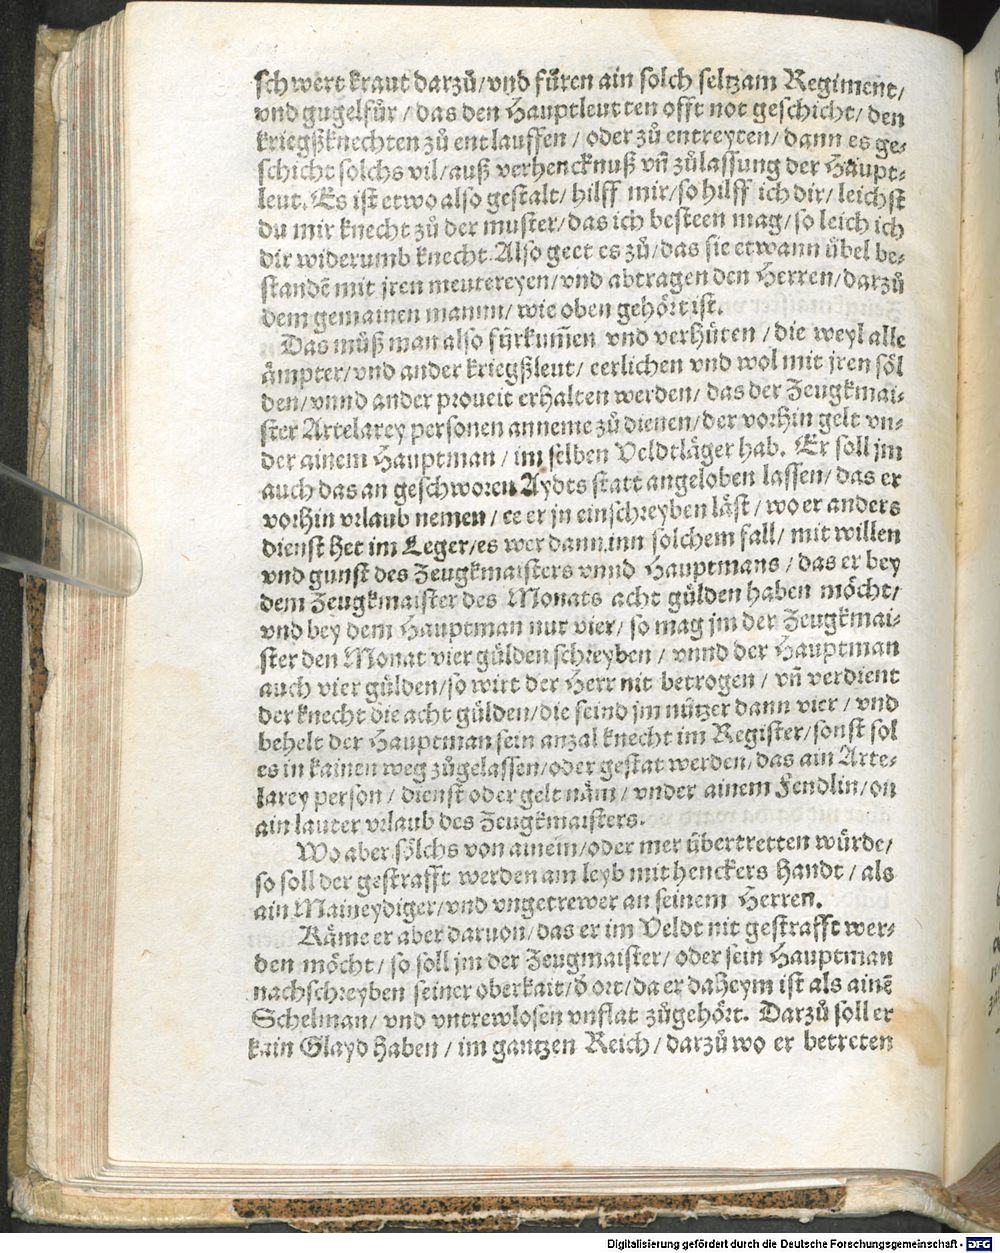 schwert kraut darzů/vnd fůren ain solch seltzam Regiment/
vnd gugelfůr/das den Hauptleutten offt not geschicht/den
kriegßknechten zů entlauffen/oder zů entreyten/dann es ge-
schicht solchs vil/auß verhencknuß vñ zůlassung der Haupt-
leut. Es ist etwo also gestalt/hilff mir/so hilff ich dir/leichst
du mir knecht zů der muster/das ich besteen mag/so leich ich
dir widerumb knecht. Also geet es zů/das sie etwann übel be-
standẽ mit jren meutereyen/vnd abtragen den Herren/darzů
dem gemainen mann/wie oben gehört ist.
Das můß man also fürkum̃en vnd verhüten/die weyl alle
ämpter/vnd ander kriegßleut/eerlichen vnd wol mit jren söl
den/vnnd ander proueit erhalten werden/das der Zeugkmai-
ster Artelarey personen anneme zů dienen/der vorhin gelt vn-
der ainem Hauptman/im selben Veldtläger hab. Er soll jm
auch das an geschworen Aydts statt angeloben lassen/das er
vorhin vrlaub nemen/ee er jn einschreyben läst/wo er anders
dienst het im Leger/es wer dann inn solchem fall/mit willen
vnd gunst des Zeugkmaisters vnnd Hauptmans/das er bey
dem Zeugkmaister des Monats acht gülden haben möcht/
vnd bey dem Hauptman nur vier/so mag jm der Zeugkmai-
ster den Monat vier gülden schreyben/vnnd der Hauptman
auch vier gülden/so wirt der Herr nit betrogen/vñ verdient
der knecht die acht gülden/die seind jm nützer dann vier/vnd
behelt der Hauptman sein anzal knecht im Register/sonst sol
es in kainen weg zůgelassen/oder gestat werden/das ain Arte-
larey person/dienst oder gelt näm/vnder ainem Fendlin/on
ain lauter vrlaub des Zeugkmaisters.
Wo aber sölchs von ainem/oder mer übertretten würde/
so soll der gestrafft werden am leyb mit henckers handt/als
ain Maineydiger/vnd vngetrewer an seinem Herren.
Käme er aber daruon/das er im Veldt nit gestrafft wer-
den möcht/so soll jm der Zeugmaister/oder sein Hauptman
nachschreyben seiner oberkait/d ort/da er daheym ist als ainẽ
Schelman/vnd vntrewlosen vnflat zůgehört. Darzů soll er
kain Glayd haben/im gantzen Reich/darzů wo er betreten
Digitalisierung gefördert durch die Deutsche Forschungsgemeinschaft - DFG